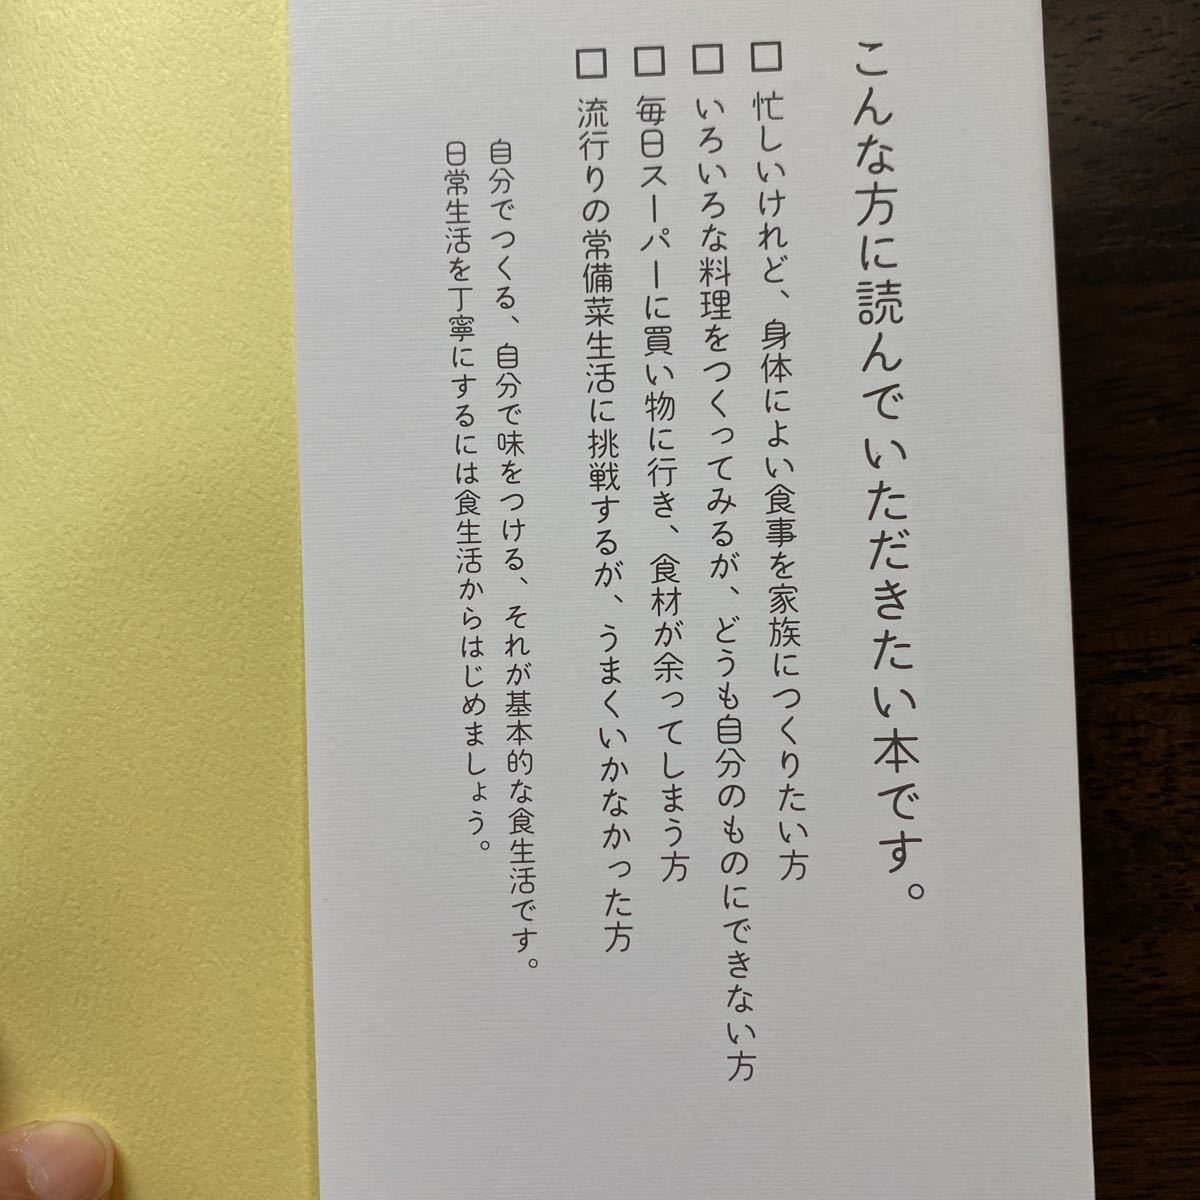 こんな方に読んでいただきたい本です。
□ 忙しいけれど、身体によい食事を家族につくりたい方
□ いろいろな料理をつくってみるが、どうも自分のものにできない方
□ 毎日スーパーに買い物に行き、食材が余ってしまう方
□ 流行りの常備菜生活に挑戦するが、うまくいかなかった方
自分でつくる、自分で味をつける、それが基本的な食生活です。
日常生活を丁寧にするには食生活からはじめましょう。